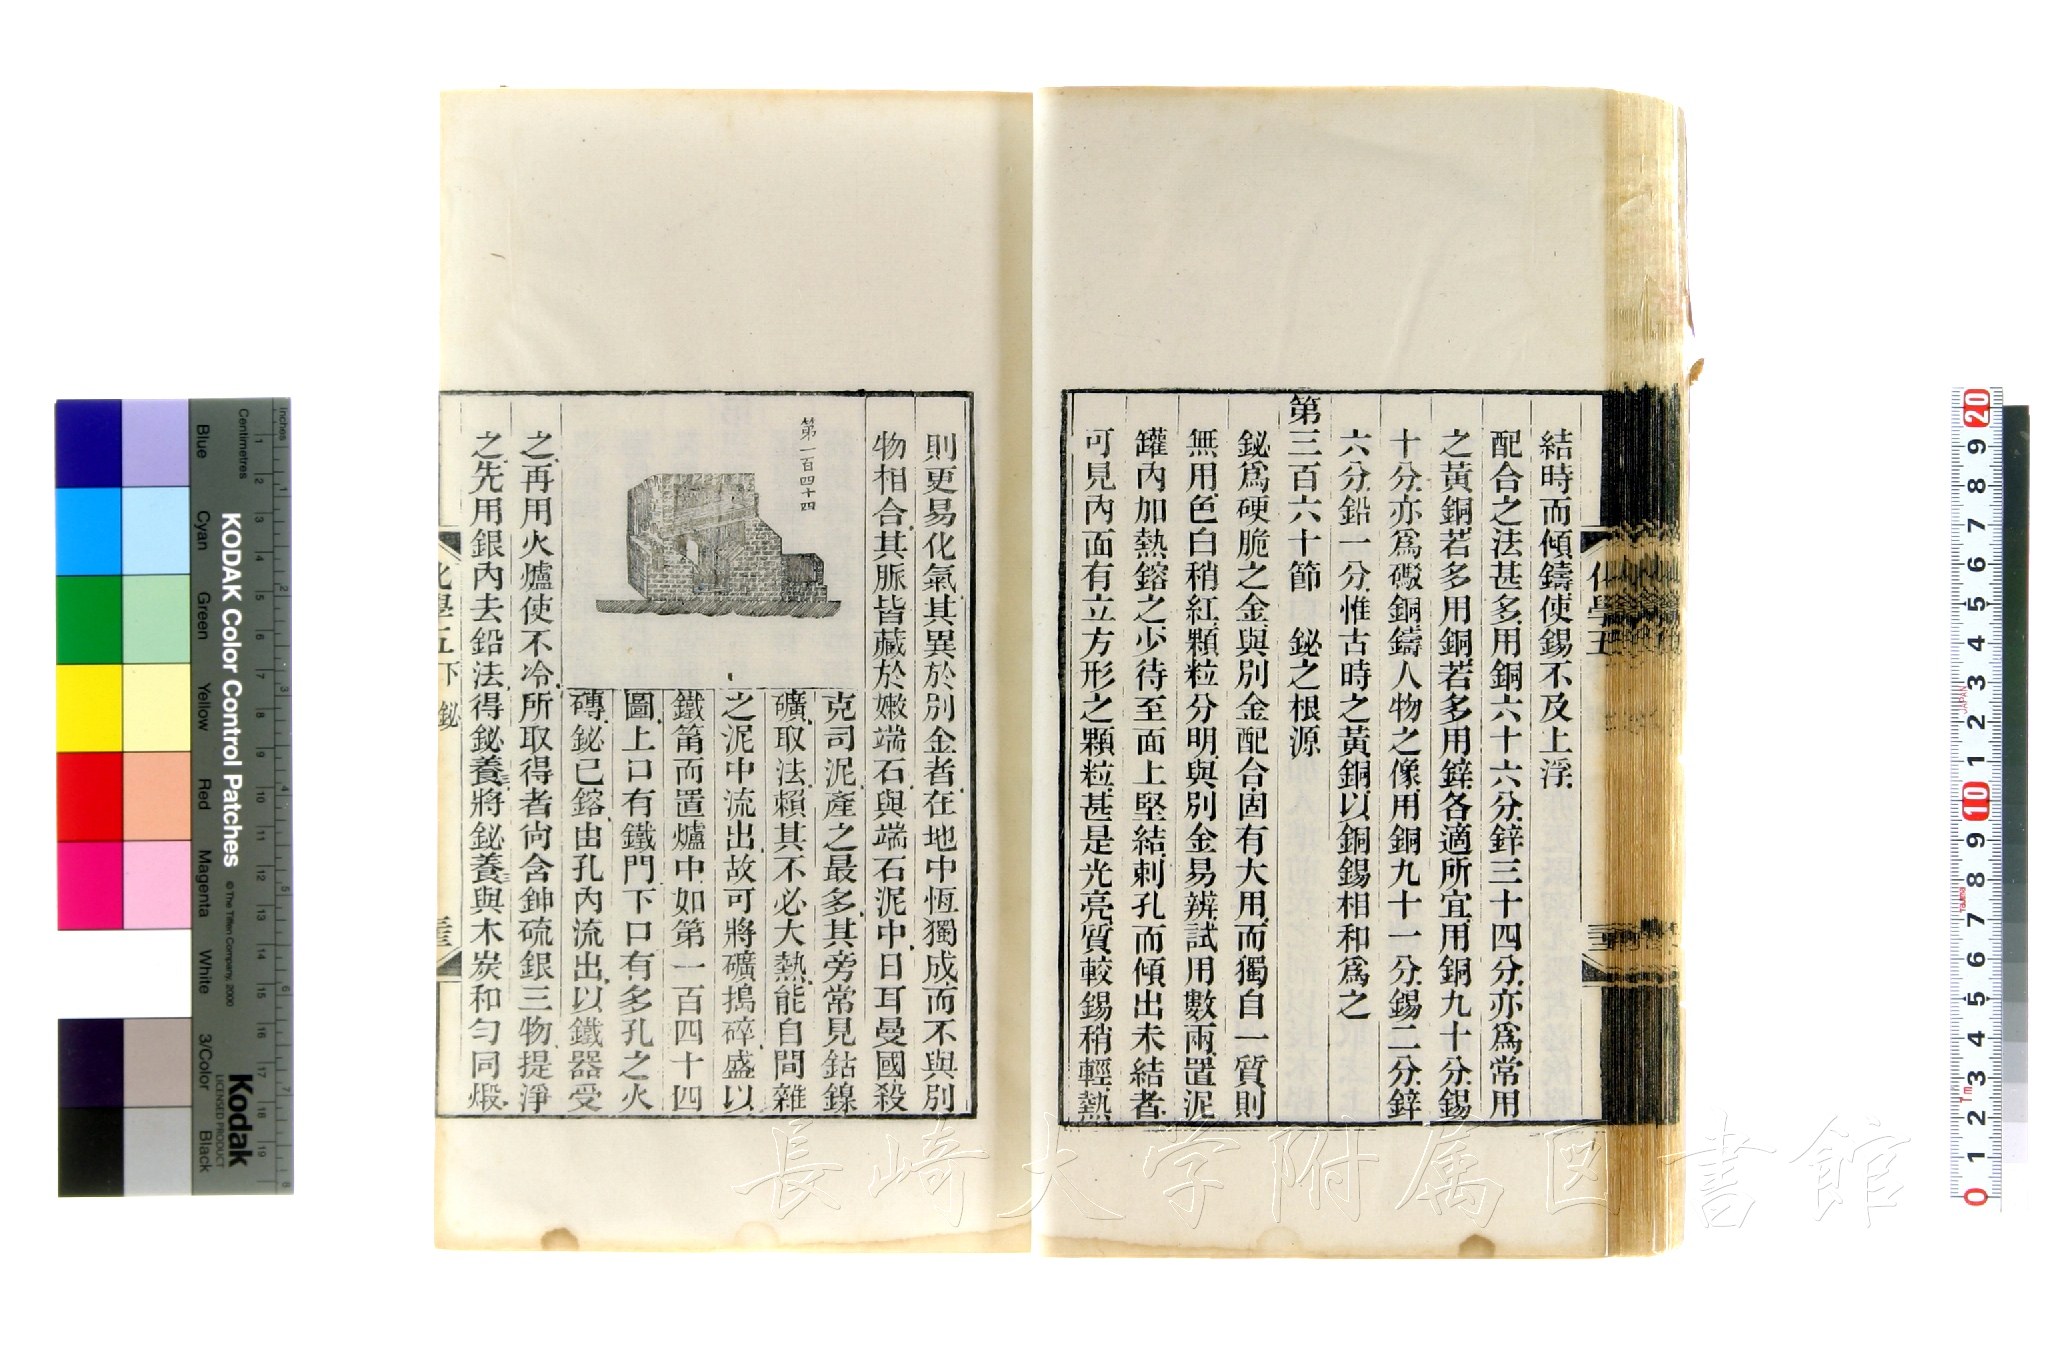 結時而傾鑄使錫不及上浮
配合之法甚多用銅六十六分鋅三十四分亦爲常用
之黃銅若多用銅若多用鋅各適所宜用銅九十分錫
十分亦爲礮銅鑄人物之像用銅九十一分錫二分鋅
六分鉛一分惟古時之黃銅以銅錫相和爲之
第三百六十節　鉍之根源
鉍爲硬脆之金與別金配合固有大用而獨自一質則
無用色白稍紅顆粒分明與別金易辨試用數兩置泥
罐內加熱鎔之少待至面上堅結刺孔而傾出未結者
可見內面有立方形之顆粒甚是光亮質較錫稍輕熱
則更易化氣其異於別金者在地中恆獨成而不與別
物相合其脈皆藏於嫩端石與端石泥中日耳曼國殺
克司泥產之最多其旁常見鈷鎳
礦取法賴其不必大熱能自間雜
之泥中流出故可將礦搗碎盛以
鐵筩而置爐中如第一百四十四
圖上口有鐵門下口有多孔之火
磚鉍已鎔由孔內流出以鐵器受
之再用火爐使不冷所取得者尙含鉮硫銀三物提淨
之先用銀內去鉛法得鉍養將鉍養與木炭和勻同煅
第一百四十四
化學五下　鉍
化學五
KODAK Color Control Patches
© The Tiffen Company, 2000
Kodak
LICENSED PRODUCT
Inches
Centimetres
Blue
Cyan
Green
Yellow
Red
Magenta
White
3/Color
Black
長崎大学附属図書館